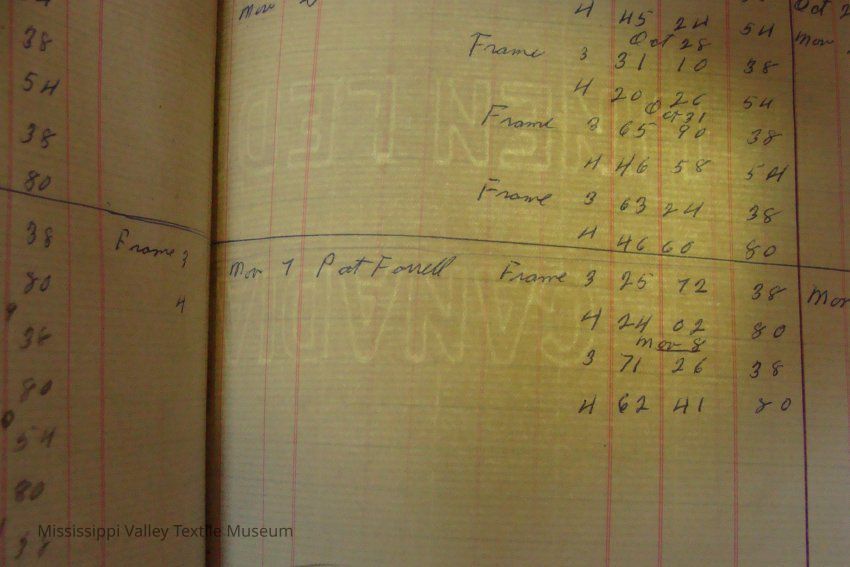 38
54
38
80
38
80
38
80
54
80
Frame 3
4
Nov
4 45 24 54
Oct 28
Frame 3 31 10 38
4 20 26 54
Oct 31
Frame 3 65 90 38
4 46 58 54
Frame 3 63 24 38
4 46 60 80
Nov 1 Pat Farrell Frame 3 25 72 38
4 24 02 80
Nov 8
3 71 26 38
4 62 41 80
Oct 2
Nov
Nov
Mississippi Valley Textile Museum